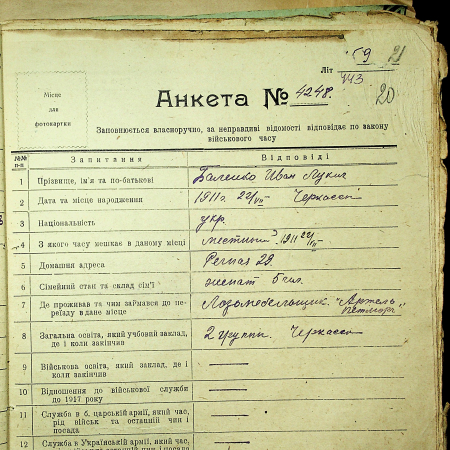 59 21
Літ 443
20
Місце
для
фотокартки
Анкета № 4248.
Заповнюється власноручно, за неправдиві відомості відповідає по закону
військового часу
№№ п-п Запитання Відповіді
1 Прізвище, ім'я та по-батькові Баленко Иван Лукич
2 Дата та місце народження 1911 г. 22/VII Черкассы
3 Національність укр.
4 З якого часу мешкає в даному місці местный 1911 22/VII
5 Домашня адреса 28.
6 Сімейний стан та склад сім'ї женат
7 Де проживав та чим займався до пе-
реїзду в дане місце "Артель
8 Загальна освіта, який учбовий заклад,
де і коли закінчив 2 группы. Черкассы
9 Військова освіта, який заклад, де і
коли закінчив —
10 Відношення до військової служби
до 1917 року —
11 Служба в б. царській армії, який час,
рід військ та останній чин і
посада —
12 Служба в Українській армії, який час,